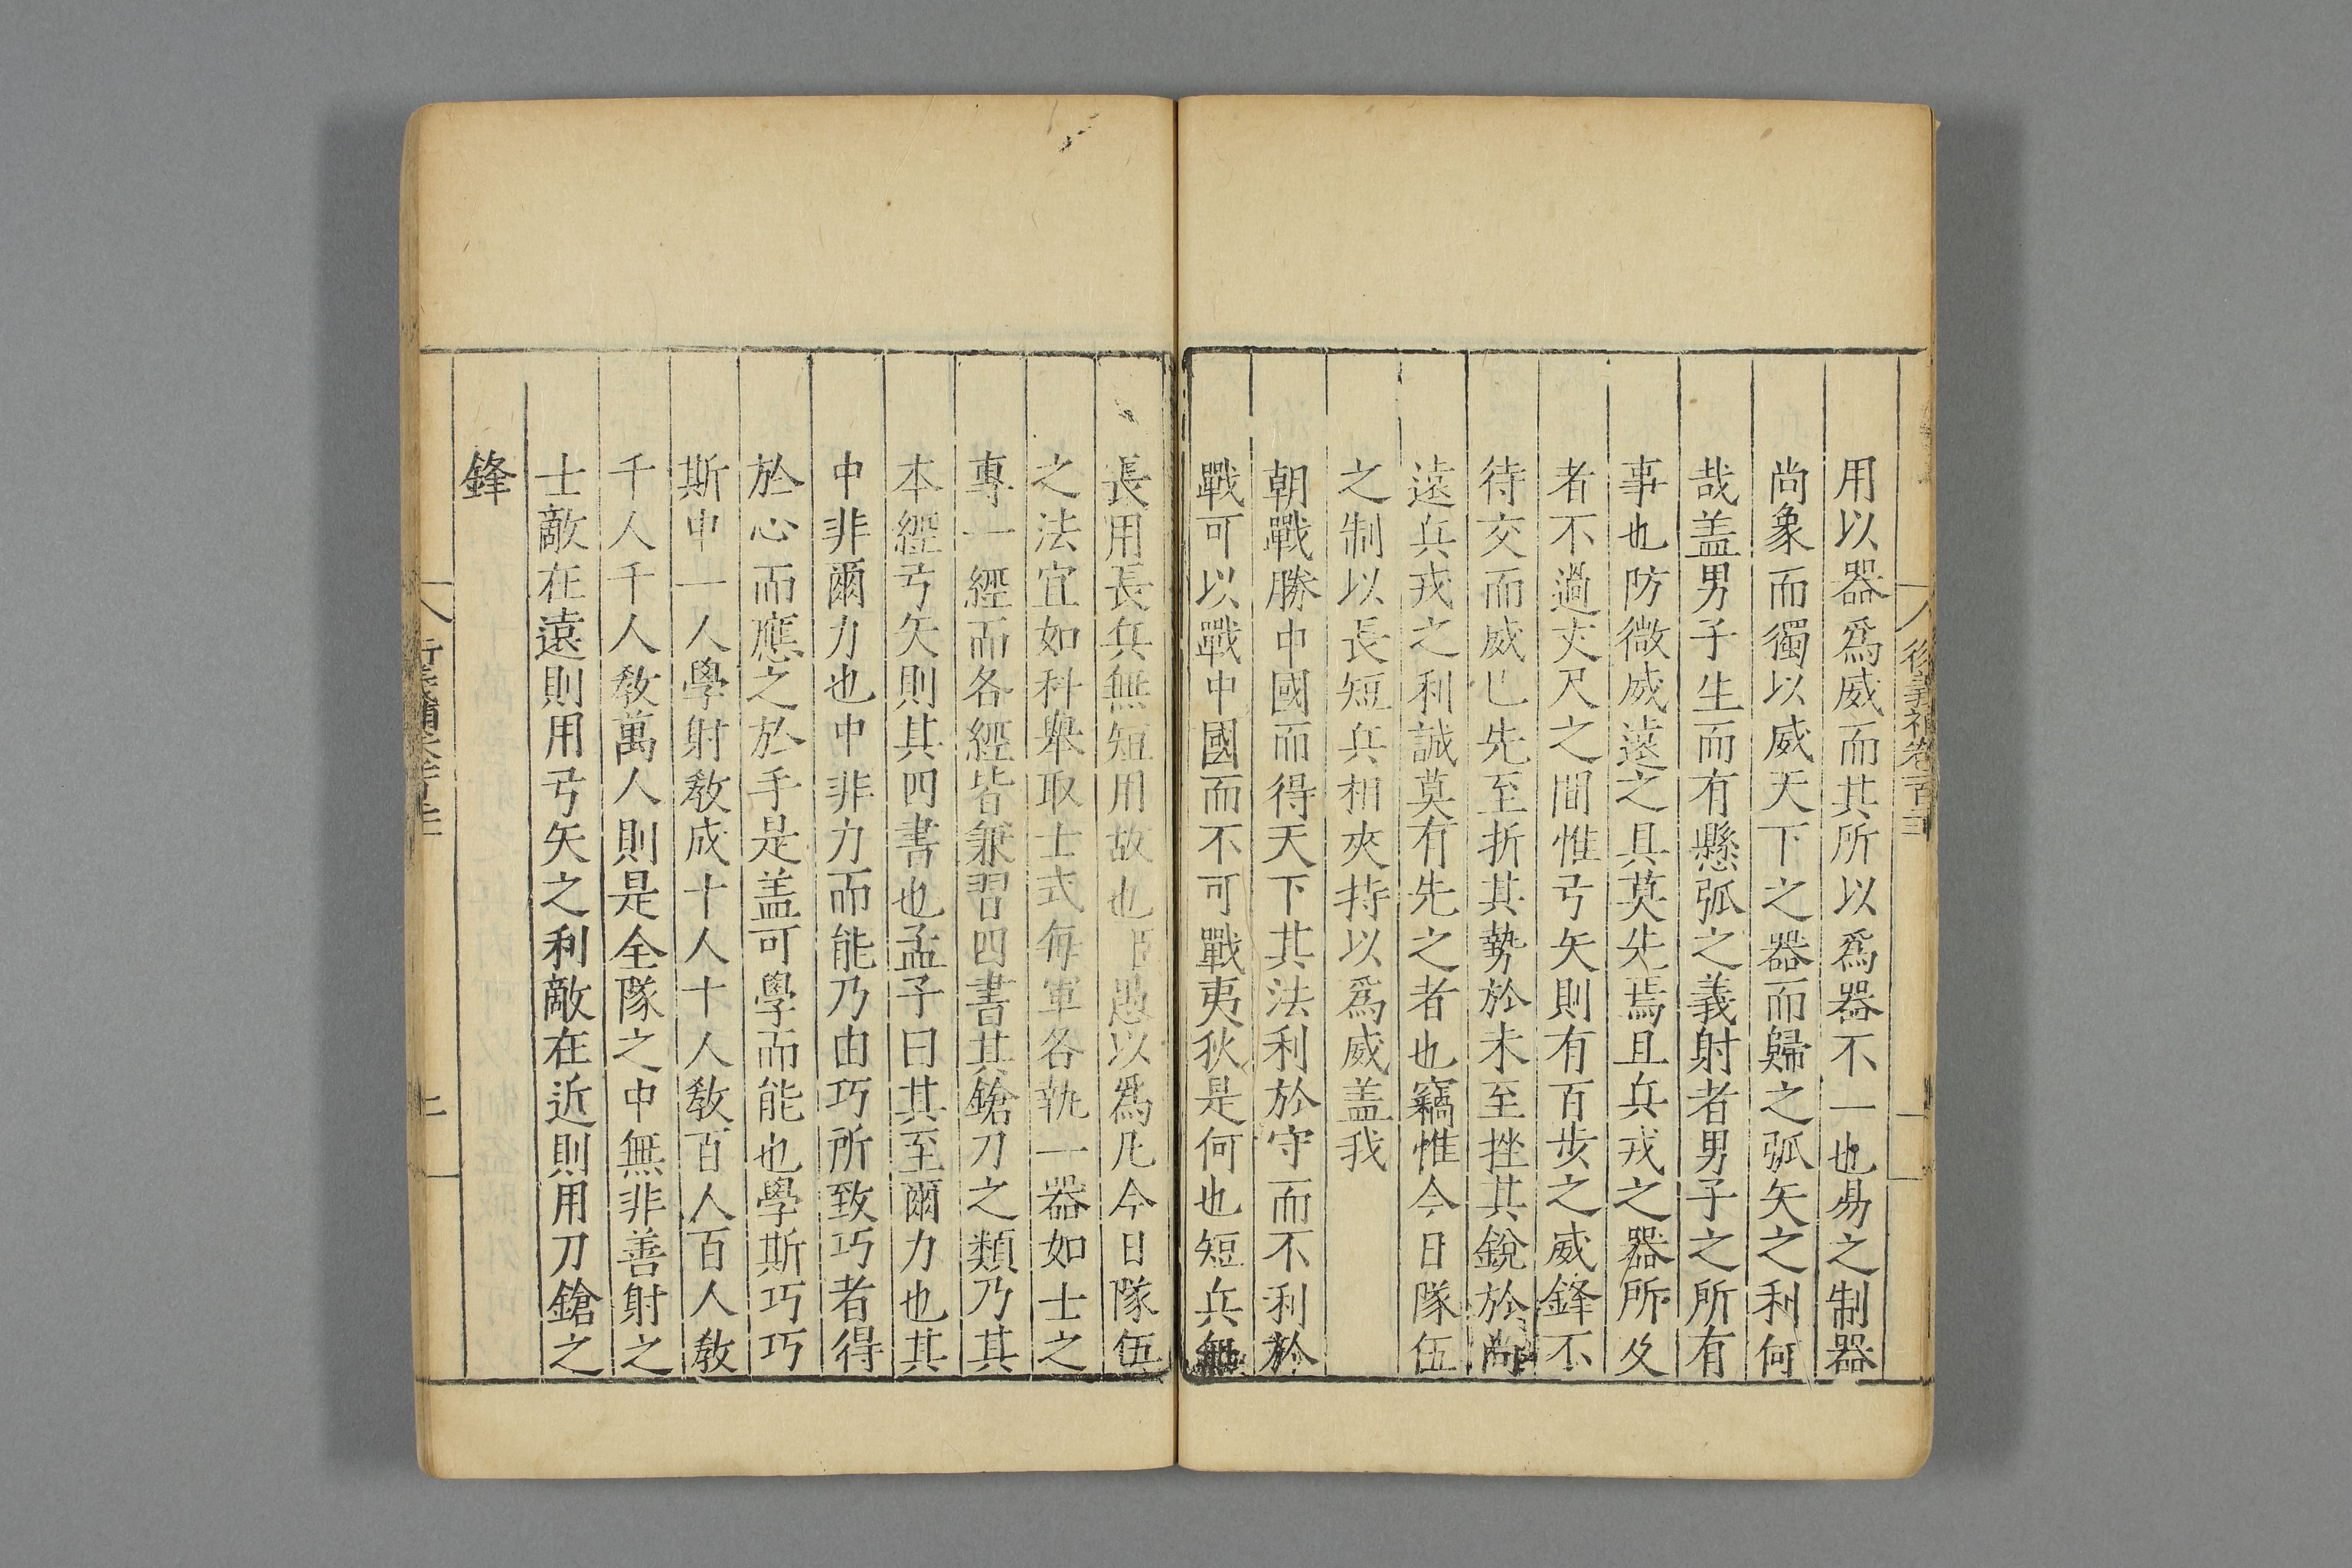 用以器爲威而其所以爲器不一也易之制器
尚象而獨以威天下之器而歸之弧矢之利何
哉盖男子生而有懸弧之義射者男子之所有
事也防微威遠之具莫先焉且兵戎之器所及
者不過丈尺之間惟弓矢則有百步之威鋒不
待交而威已先至折其勢於未至挫其銳於尚
遠兵戎之利誠莫有先之者也竊惟今日隊伍
之制以長短兵相夾持以爲威盖我
朝戰勝中國而得天下其法利於守而不利於
戰可以戰中國而不可戰夷狄是何也短兵無
長用長兵無短用故也臣愚以爲凡今日隊伍
之法宜如科舉取士式每軍各執一器如士之
專一經而各經皆兼習四書其鎗刀之類乃其
本經弓矢則其四書也孟子曰其至爾力也其
中非爾力也中非力而能乃由巧所致巧者得
於心而應之於手是盖可學而能也學斯巧巧
斯中一人學射教成十人十人教百人百人教
千人千人教萬人則是全隊之中無非善射之
士敵在遠則用弓矢之利敵在近則用刀鎗之
鋒